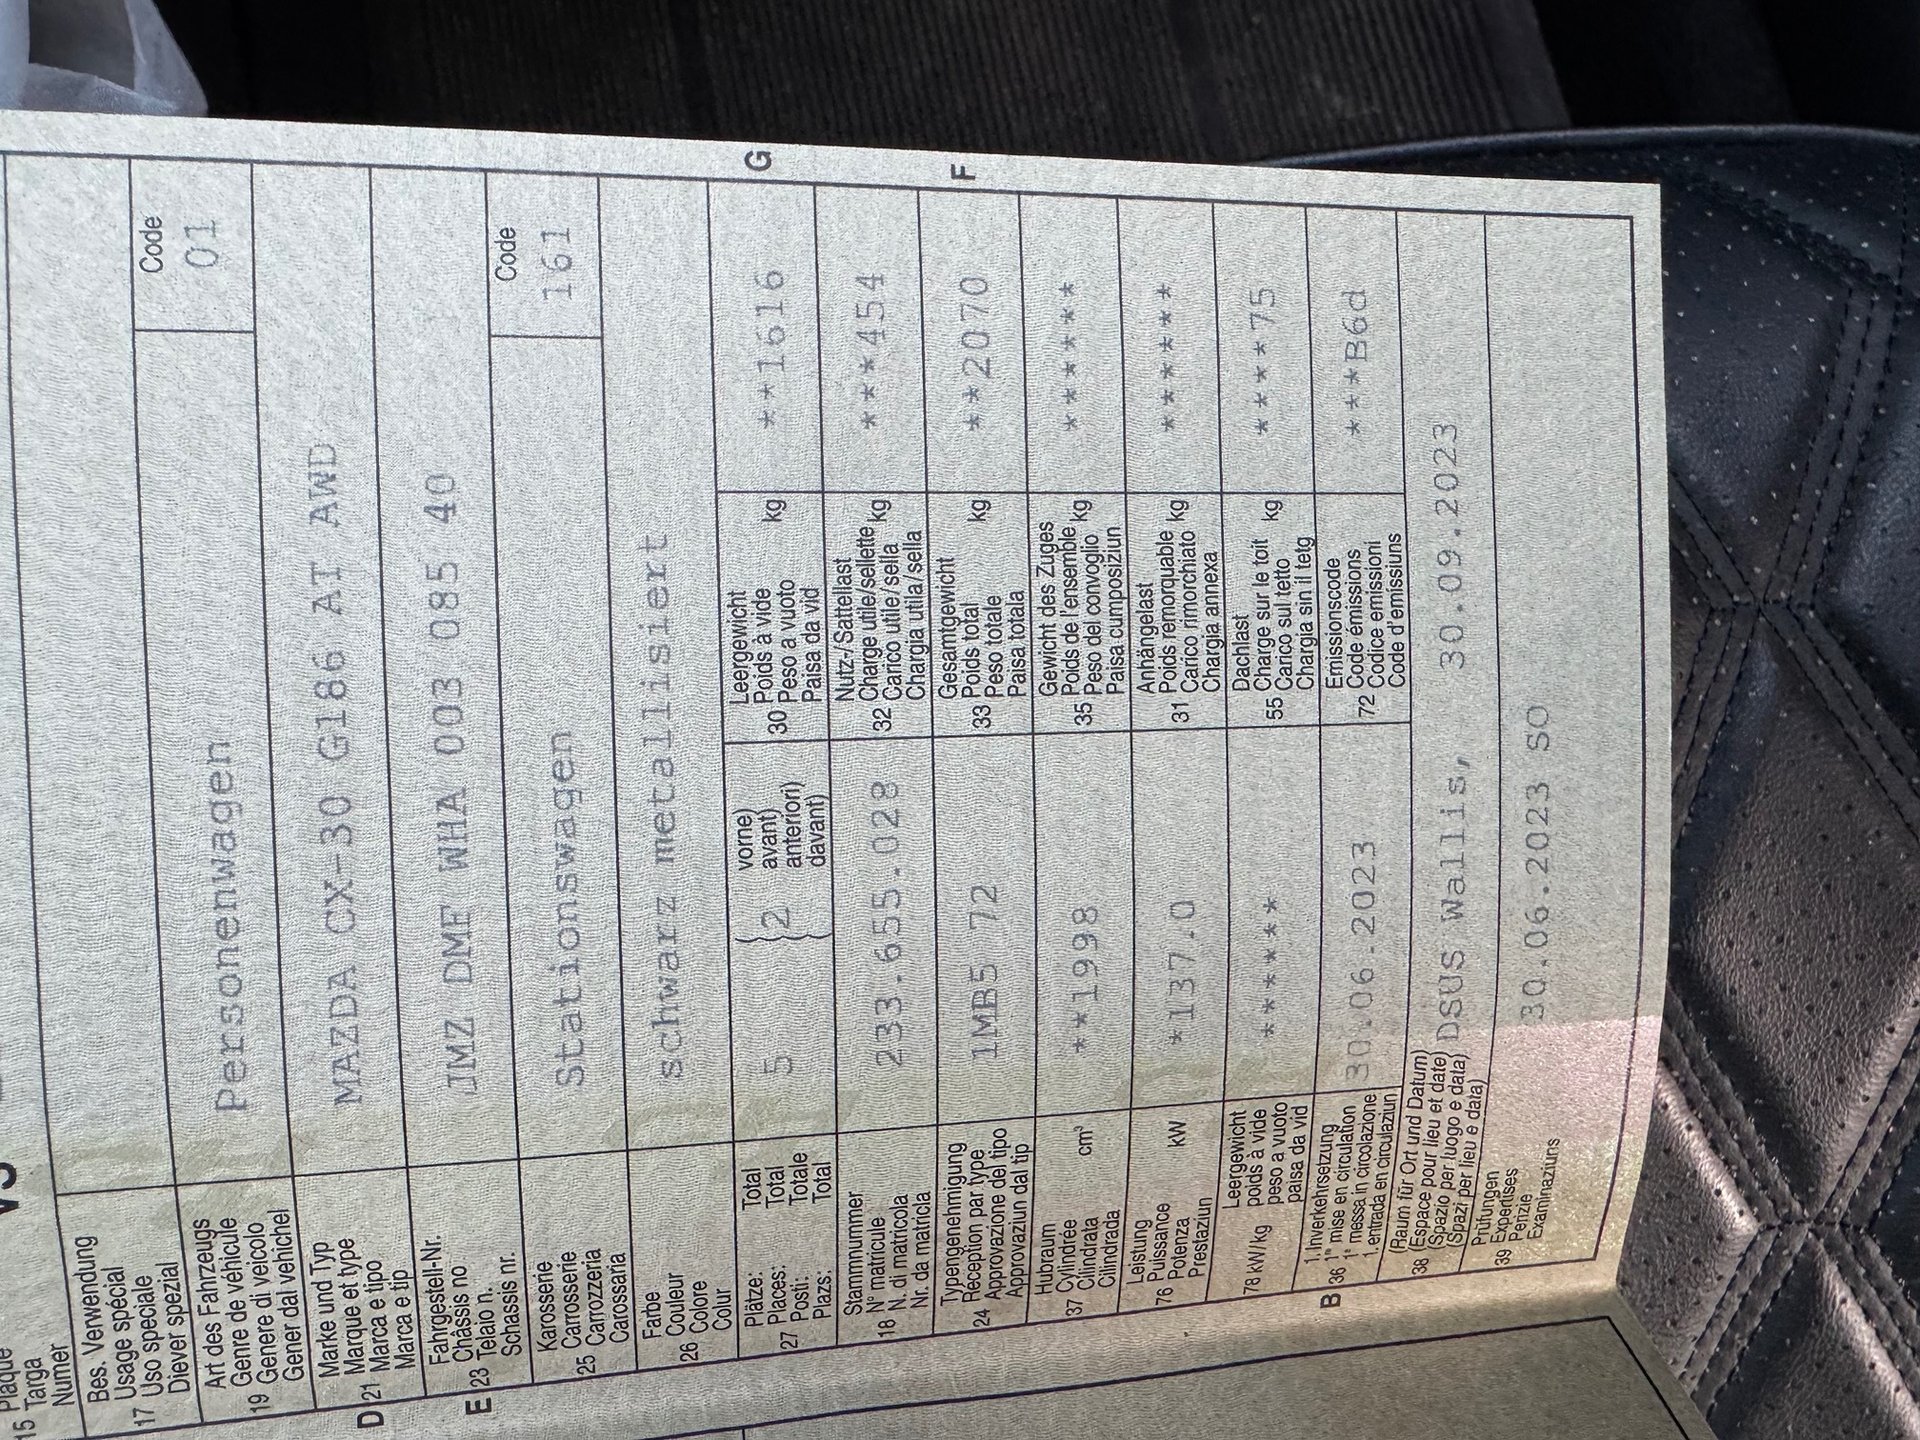 15 Plaque
Targa
Numer
Bes. Verwendung
Usage spécial
17 Uso speciale
Diever spezial
Art des Fahrzeugs
Genre de véhicule
19 Genere di veicolo
Gener dal vehichel
Personenwagen
Code
01
Marke und Typ
Marque et type
D 21 Marca e tipo
Marca e tip
MAZDA CX-30 G186 AT AWD
Fahrgestell-Nr.
Châssis no
E 23 Telaio n.
Schassis nr.
JMZ DMF WHA 003 085 40
Karosserie
Carrosserie
25 Carrozzeria
Carossaria
Stationswagen
Code
161
Farbe
Couleur
26 Colore
Colur
schwarz metallisiert
Plätze: Total
Places: Total
27 Posti: Totale
Plazs: Total
5
2
vorne)
avant)
anteriori)
davant)
Leergewicht
Poids à vide
30 Peso a vuoto kg
Paisa da vid
**1616
G
Stammnummer
N° matricule
18 N. di matricola
Nr. da matricla
233.655.028
Nutz-/Sattellast
Charge utile/sellette
32 Carico utile/sella kg
Chargia utila/sella
***454
Typengenehmigung
Réception par type
24 Approvazione del tipo
Approvaziun dal tip
1MB5 72
Gesamtgewicht
Poids total
33 Peso totale kg
Paisa totala
**2070
F
Hubraum
Cylindrée
37 Cilindrata cm³
Cilindrada
**1998
Gewicht des Zuges
Poids de l'ensemble
35 Peso del convoglio kg
Paisa cumposiziun
******
Leistung
Puissance
76 Potenza kW
Prestaziun
*137.0
Anhängelast
Poids remorquable
31 Carico rimorchiato kg
Chargia annexa
*******
Leergewicht
poids à vide
78 kW/kg peso a vuoto
paisa da vid
******
Dachlast
Charge sur le toit
55 Carico sul tetto kg
Chargia sin il tetg
*****75
1. Inverkehrsetzung
1re mise en circulation
B 36 1a messa in circolazione
1. entrada en circulaziun
30.06.2023
Emissionscode
Code émissions
72 Codice emissioni
Code d'emissiuns
***B6d
(Raum für Ort und Datum)
(Espace pour lieu et date)
38 (Spazio per luogo e data)
(Spazi per lieu e data)
DSUS Wallis, 30.09.2023
Prüfungen
Expertises
39 Perizie
Examinaziuns
30.06.2023 SO